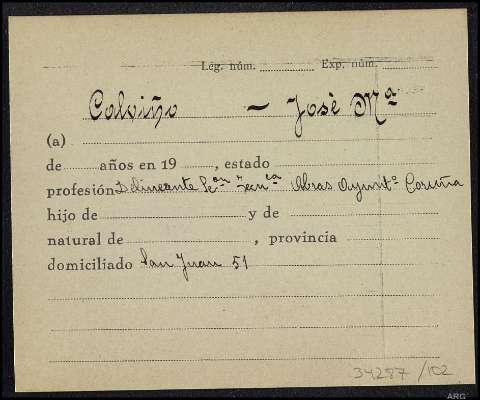 Lég. núm. Exp. núm.
Calviño — José Mª
(a)
de años en 19 , estado
profesión Delineante Scon Tecnca Obras Ayuntº Coruña
hijo de y de
natural de , provincia
domiciliado San Juan 51
34287/102
ARG